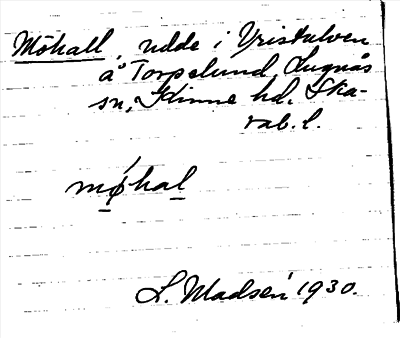 Möhall, udde i Yristulven
å Torpelund, Lugnås
sn, Kinne hd. Ska-
rab. l.
møhal
L. Madsen 1930.